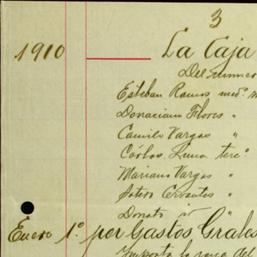 3
1910 La Caja
Del
Esteban Ramos med.º
Donaciano Flores "
Camilo Vargas "
Carlos Luna terc.º
Mariano Vargas "
Sotero Cervantes "
Donato "
Enero 1.º por Gastos Grales
Importe la raya del